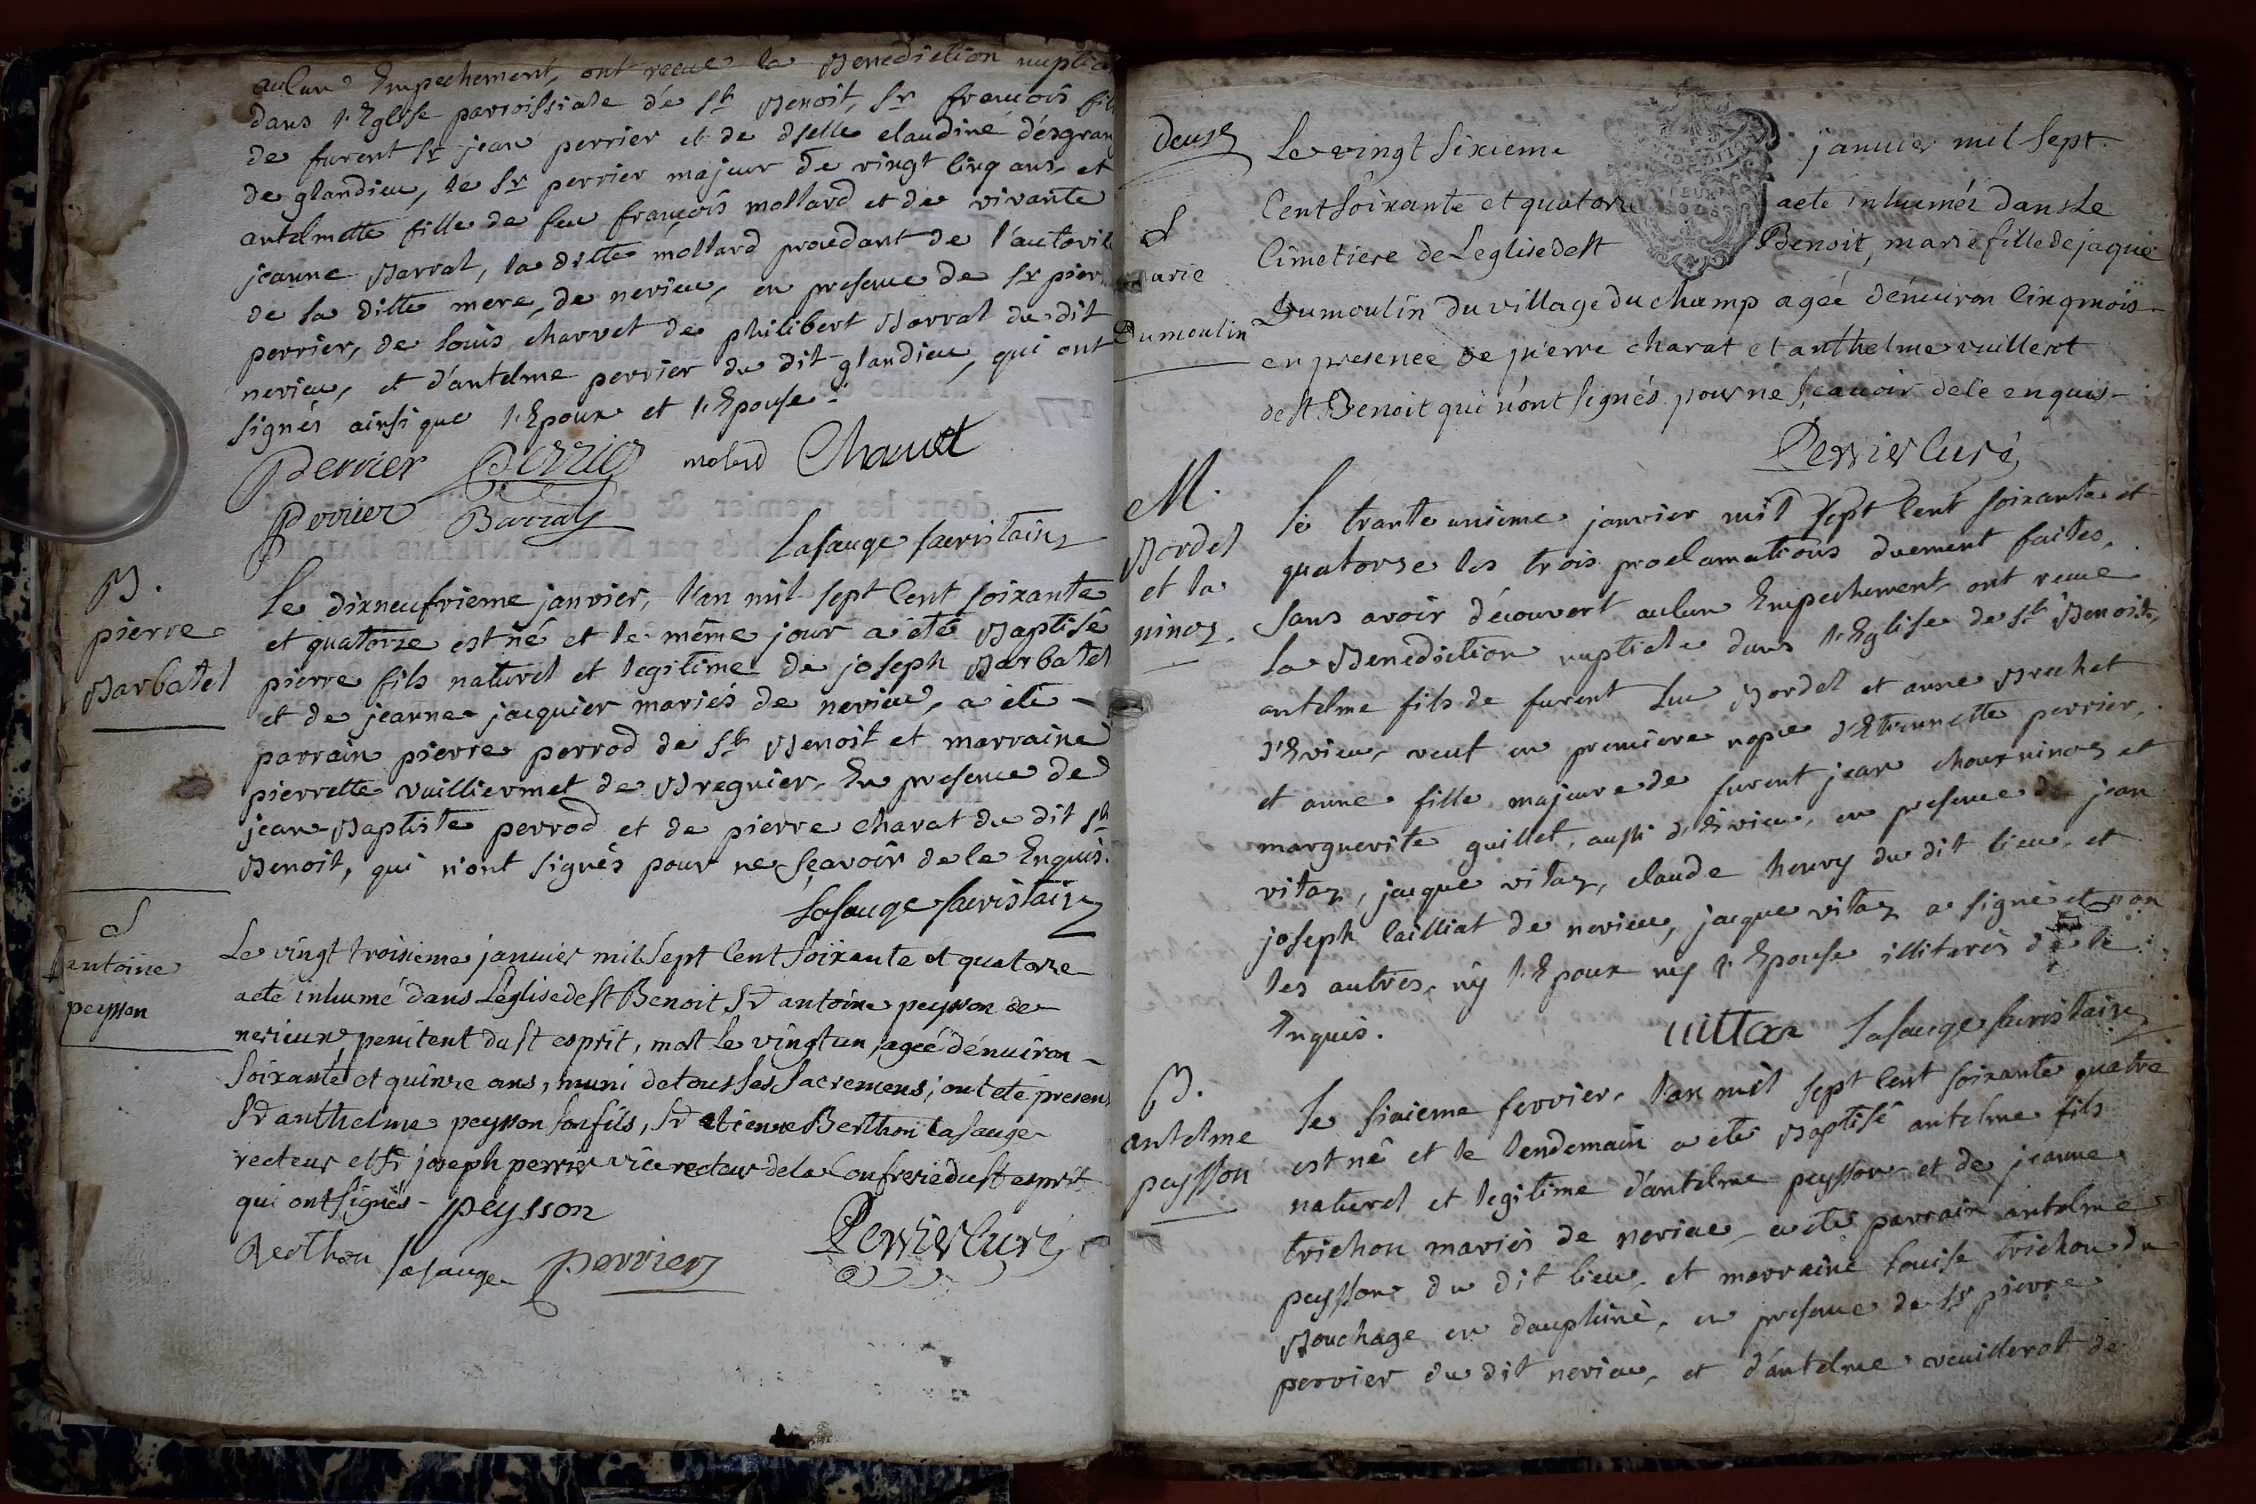 aucun Empechement, ont recue la Benediction nuptial
dans l'Eglise parroissiale de st Benoit, sr francois fils
de furent sr jean perrier et de dselle claudine desgran
de glandieu, le sr perrier majeur de vingt cinq ans, et
antelmette fille de feu françois mollard et de vivante
jeanne Barral, la ditte mollard procedant de l'autorit
de sa ditte mere, de nerieu, en presence de sr pierre
perrier, de louis charvet de philibert Barral du dit
nerieu, et d'antelme perrier du dit glandieu, qui ont
signés ainsi que l'Epoux et l'Epouse.
Perrier molard Chauet
perrier Barral
Lasauge sacristain
B.
pierre
Barbatel
Le dixneufvieme janvier, l'an mil sept cent soixante
et quatorze est né et le même jour a été Baptisé
pierre fils naturel et legitime de joseph Barbatel
et de jeanne jacquier mariés de nerieu, a été
parrain pierre perrod de st Benoit et marraine
pierrette vuilliermet de Bregnier. En presence de
jean-Baptiste perrod et de pierre charat du dit st
Benoit, qui n'ont signés pour ne sçavoir de le Enquis.
Lasauge sacristain
S
antoine
peysson
Le vingt troisieme januier mil sept cent soixante et quatorze
a eté inhumé dans L'eglise de st Benoit Sr antoine peysson de
nerieux, penitent du st esprit, mort le vingt un, ageé d'enuiron
soixante et quinze ans, muni de tous ses sacremens; ont eté presens
Sr anthelme peysson son fils, Sr etienne Berthon Lasauge
recteur et Sr joseph perrier vice recteur de la Confrerie du st esprit
qui ont signés - peysson
Berthon lasauge perrier Perrier Curé
deux
S
marie
Dumoulin
Le vingt sixieme januier mil sept
cent soixante et quatorze a eté inhumée dans Le
Cimetiere de Leglise de st Benoit, marie fille de jaque
Dumoulin du village du champ ageé d'enuiron cinq mois
en presence de pierre charat et anthelme vuillerot
de st Benoit qui n'ont signés pour ne sçauoir de ce enquis
Perrier Curé
M.
Bordel
et la
ninoz
Le trante unieme janvier mil sept cent soixante et
quatorse les trois proclamations duement faites,
sans avoir découvert aucun Empechement ont recue
la Benediction nuptiale dans l'Eglise de st Benoit,
antelme fils de furent Luc Bordel et anne Brechet
d'Evieu, veuf en premiere nopce d'Etiennette perrier,
et anne fille majeure de furent jean choux ninoz et
marguerite guillet, aussi d'Evieu, en presence de jean
vitaz, jacque vitaz, claude henry du dit lieu, et
joseph cailliat de nerieu, jacque vitaz a signé et non
les autres, ny l'Epoux ny l'Epouse illiterés de ce
Enquis.
uittaz Lasauge sacristain
B.
antelme
peysson
Le sixieme fevrier, l'an mil sept cent soixante quatre
est né et le lendemain a eté Baptisé antelme fils
naturel et legitime d'antelme peysson et de jeanne
trichon mariés de nerieu, a eté parrain antelme
peysson du dit lieu, et marraine Louise trichon du
Bouchage en dauphiné, en presence de sr pierre
perrier du dit nerieu, et d'antelme vuillerot de